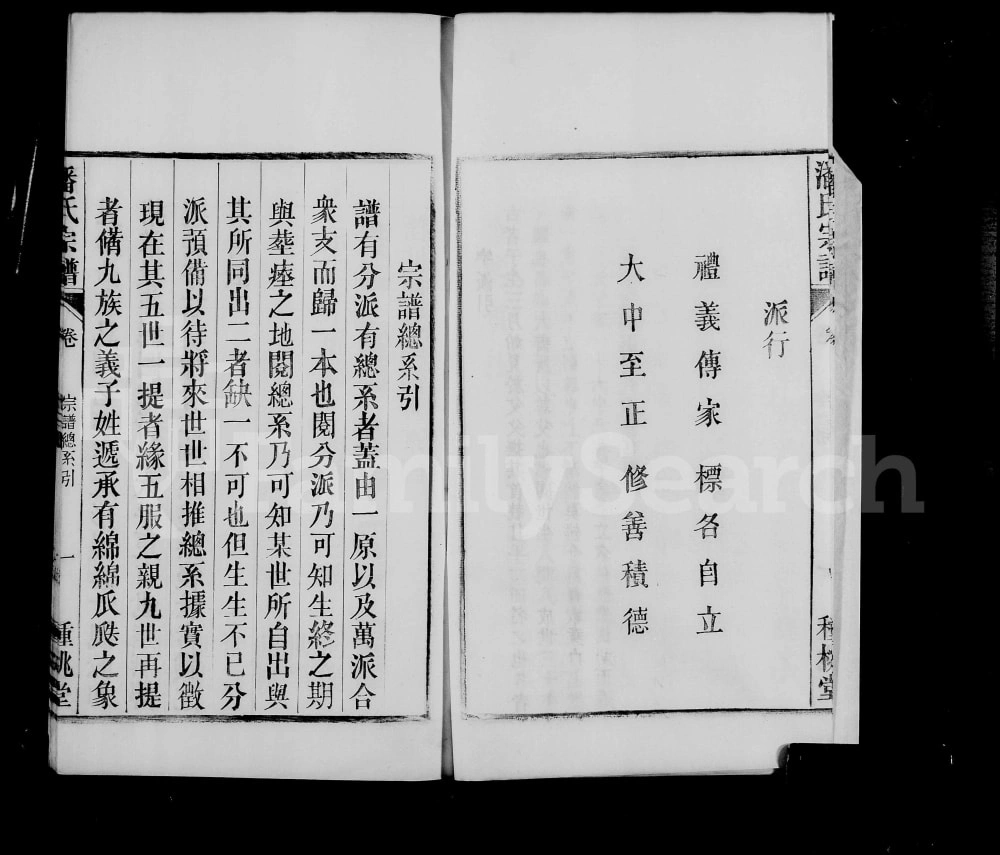 潘氏宗譜
種桃堂
派行
禮義傳家標各自立
大中至正修善積德
宗譜總系引
譜有分派有總系者蓋由一原以及萬派合
衆支而歸一本也閱分派乃可知生終之期
與塟瘞之地閱總系乃可知某世所自出與
其所同出二者缺一不可也但生生不已分
派預備以待將來世世相推總系據實以徵
現在其五世一提者緣五服之親九世再提
者備九族之義子姓遞承有綿綿瓜瓞之象
潘氏宗譜
卷
宗譜總系引
一
種桃堂
FamilySearch